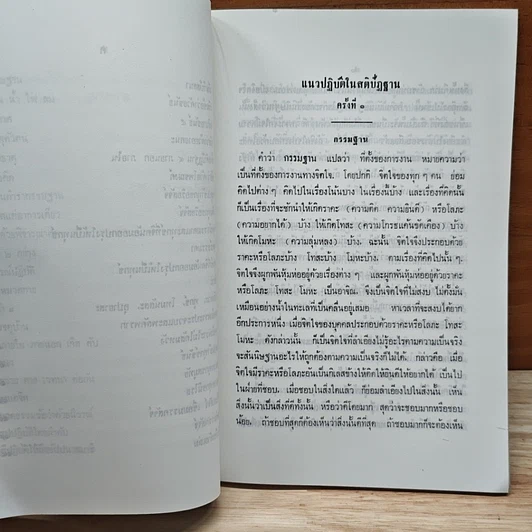 แนวปฏิบัติในสติปัฏฐาน
ครั้งที่ ๑
กรรมฐาน
คำว่า กรรมฐาน แปลว่า ที่ตั้งของการงาน หมายความว่า
เป็นที่ตั้งของการงานทางจิตใจ. โดยปกติ จิตใจของทุก ๆ คน ย่อม
คิดไปต่าง ๆ คิดไปในเรื่องโน้นบ้าง ในเรื่องนี้บ้าง และเรื่องที่คิดนั้น
ก็เป็นเรื่องที่จะชักนำให้เกิดราคะ (ความติด ความยินดี) หรือโลภะ
(ความอยากได้) บ้าง ให้เกิดโทสะ (ความโกรธแค้นขัดเคือง) บ้าง
ให้เกิดโมหะ (ความลุ่มหลง) บ้าง. ฉะนั้น จิตใจจึงประกอบด้วย
ราคะหรือโลภะบ้าง โทสะบ้าง โมหะบ้าง. ตามเรื่องที่คิดไปนั้น ๆ.
จิตใจจึงผูกพันหุ้มห่ออยู่ด้วยเรื่องต่าง ๆ และผูกพันหุ้มห่ออยู่ด้วยราคะ
หรือโลภะ โทสะ โมหะ เป็นอาจิณ. จึงเป็นจิตใจที่ไม่สงบ ไม่ตั้งมั่น
เหมือนอย่างน้ำในทะเลที่เป็นคลื่นอยู่เสมอ หาเวลาที่จะสงบได้ยาก
อีกประการหนึ่ง เมื่อจิตใจของบุคคลประกอบด้วยราคะหรือโลภะ โทสะ
โมหะ ดังกล่าวนั้น ก็เป็นจิตใจที่ลำเอียงไม่รู้อะไรตามความเป็นจริง
จะสันนิษฐานอะไรให้ถูกต้องตามความเป็นจริงก็ไม่ได้. กล่าวคือ เมื่อ
จิตใจมีราคะหรือโลภะอันเป็นกิเลสข้างให้คิดให้ยินดีให้อยากได้ เป็นไป
ในฝ่ายที่ชอบ. เมื่อชอบในสิ่งใดแล้ว ก็ย่อมลำเอียงไปในสิ่งนั้น เห็น
สิ่งนั้นว่าเป็นสิ่งที่ดีทั้งนั้น หรือว่าดีโดยมาก สุดว่าจะชอบมากหรือชอบ
น้อย. ถ้าชอบที่สุดก็ต้องเห็นว่าสิ่งนั้นดีที่สุด ถ้าชอบมากก็จะต้องเห็น